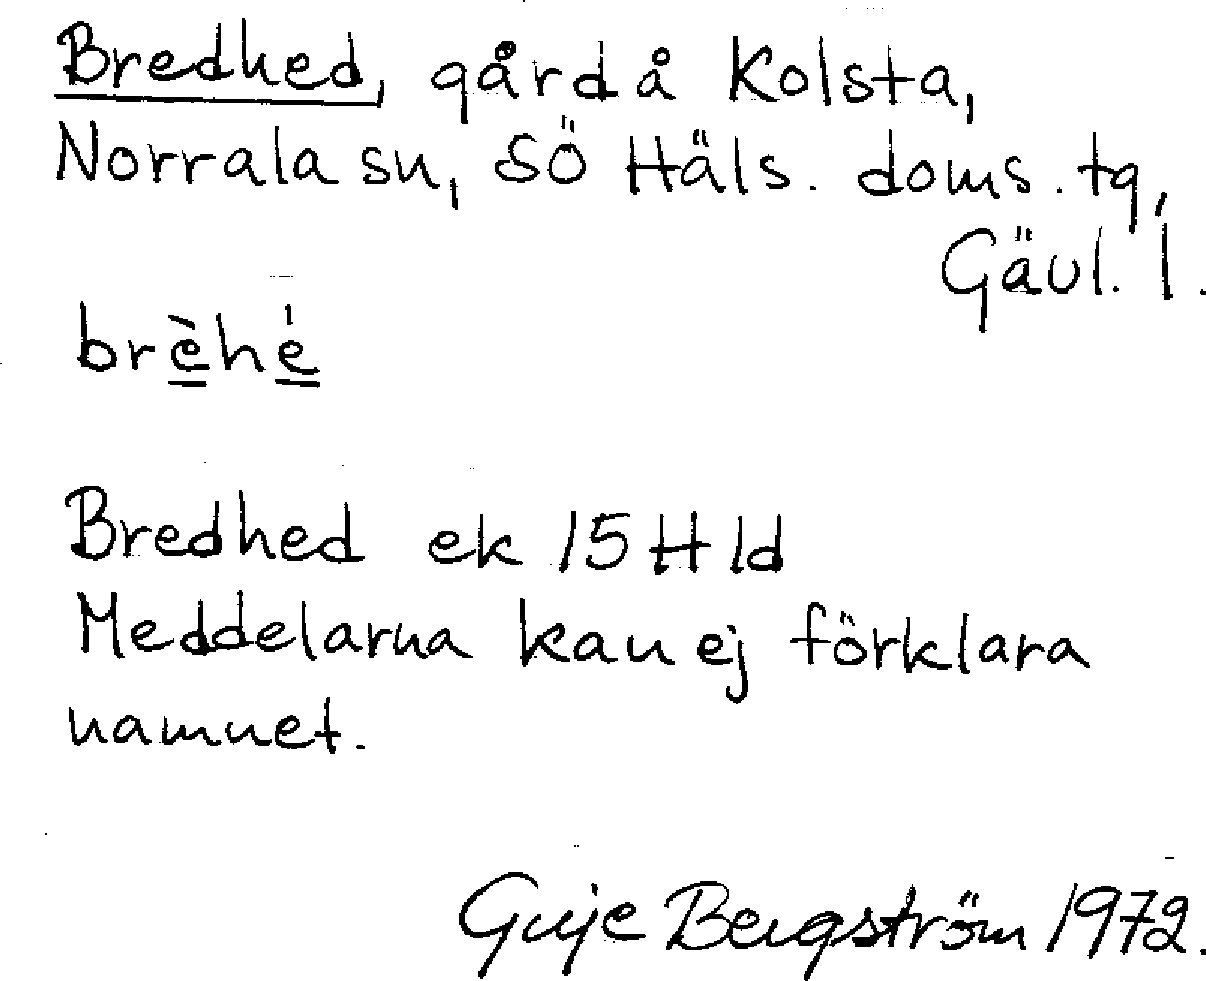 Bredhed, gård å Kolsta,
Norrala sn, SÖ Häls. doms. tg,
Gävl. l.
brèhé
Bredhed ek 15 H 1d
Meddelarna kan ej förklara
namnet.
Guje Bergström 1972.